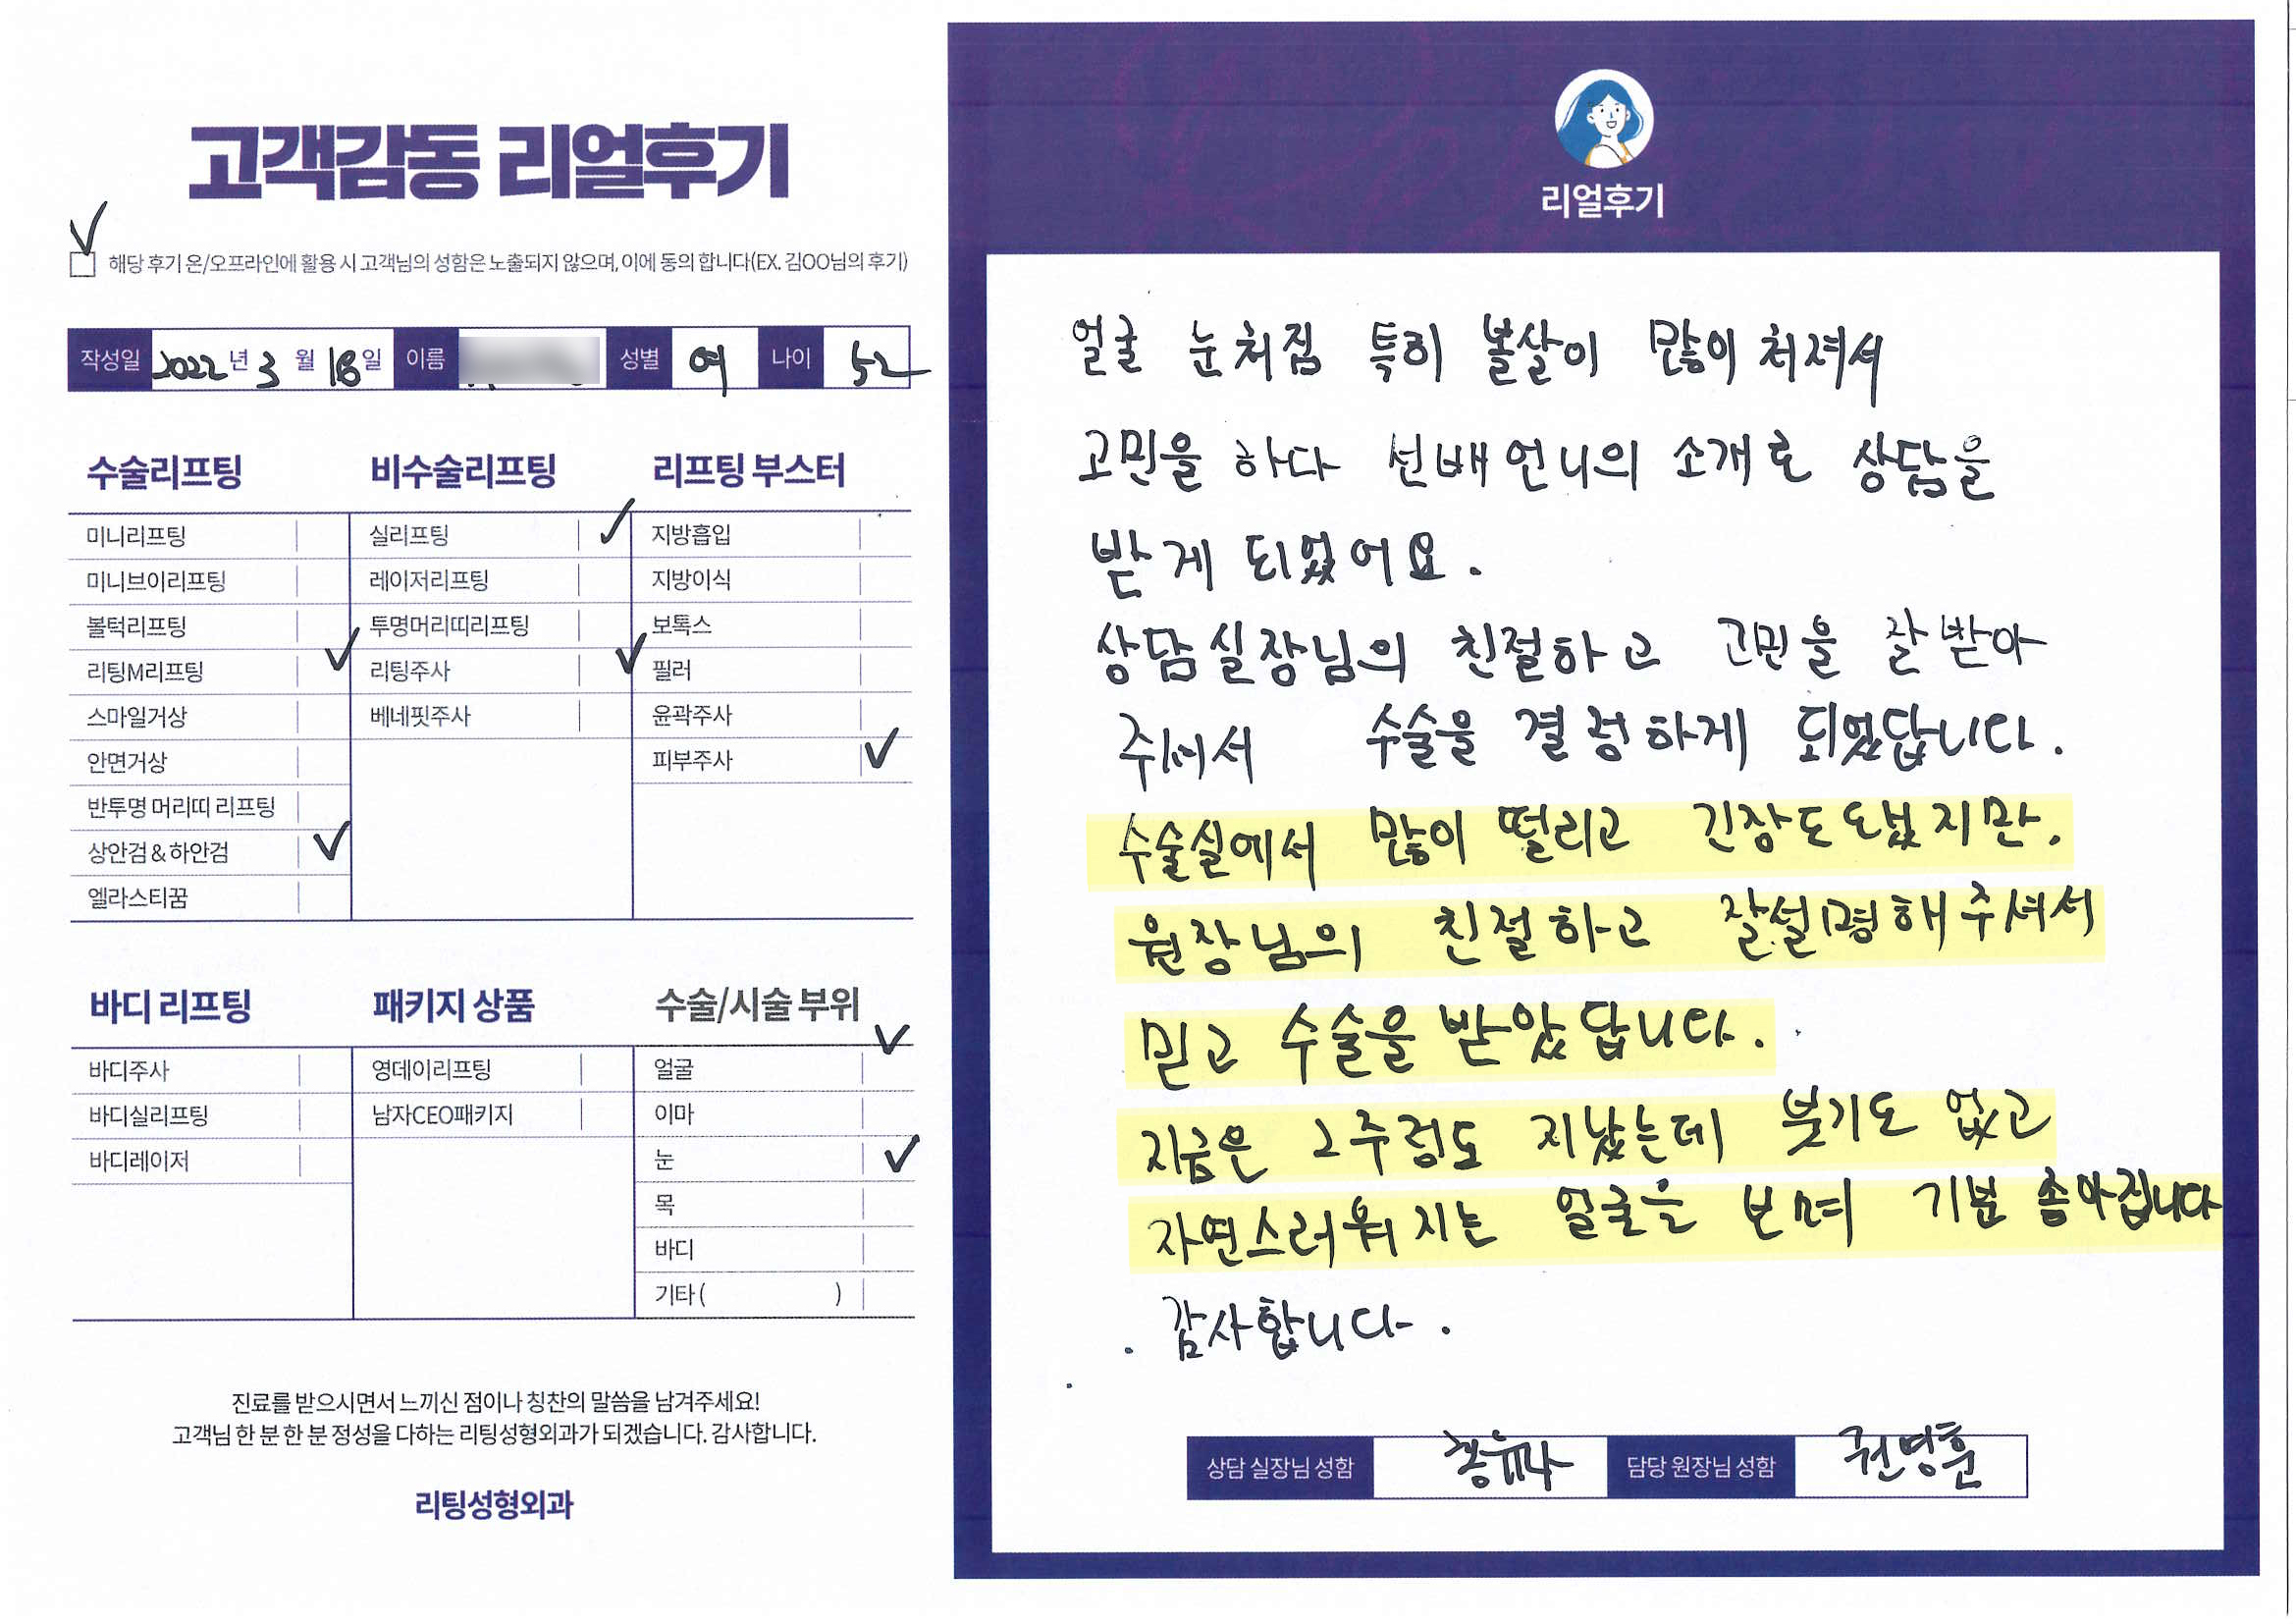 고객감동 리얼후기
해당 후기 온/오프라인에 활용 시 고객님의 성함은 노출되지 않으며, 이에 동의 합니다(EX. 김OO님의 후기)
작성일 2022년 3월 18일 이름 성별 여 나이 52
수술리프팅
미니리프팅
미니브이리프팅
볼턱리프팅
리팅M리프팅
스마일거상
안면거상
반투명 머리띠 리프팅
상안검&하안검
엘라스티꿈
비수술리프팅
실리프팅
레이저리프팅
투명머리띠리프팅
리팅주사
베네핏주사
리프팅 부스터
지방흡입
지방이식
보톡스
필러
윤곽주사
피부주사
바디 리프팅
바디주사
바디실리프팅
바디레이저
패키지 상품
영데이리프팅
남자CEO패키지
수술/시술 부위
얼굴
이마
눈
목
바디
기타 ( )
진료를 받으시면서 느끼신 점이나 칭찬의 말씀을 남겨주세요!
고객님 한 분 한 분 정성을 다하는 리팅성형외과가 되겠습니다. 감사합니다.
리팅성형외과
리얼후기
얼굴 눈처짐 특히 볼살이 많이 처져서
고민을 하다 선배언니의 소개로 상담을
받게 되었어요.
상담실장님의 친절하고 고민을 잘 받아
주셔서 수술을 결정하게 되었답니다.
수술실에서 많이 떨리고 긴장도 됐지만.
원장님의 친절하고 잘설명해주셔서
믿고 수술을 받았답니다.
지금은 2주정도 지났는데 붓기도 없고
자연스러워 지는 얼굴을 보며 기분 좋아집니다
감사합니다.
상담 실장님 성함
담당 원장님 성함 권영훈